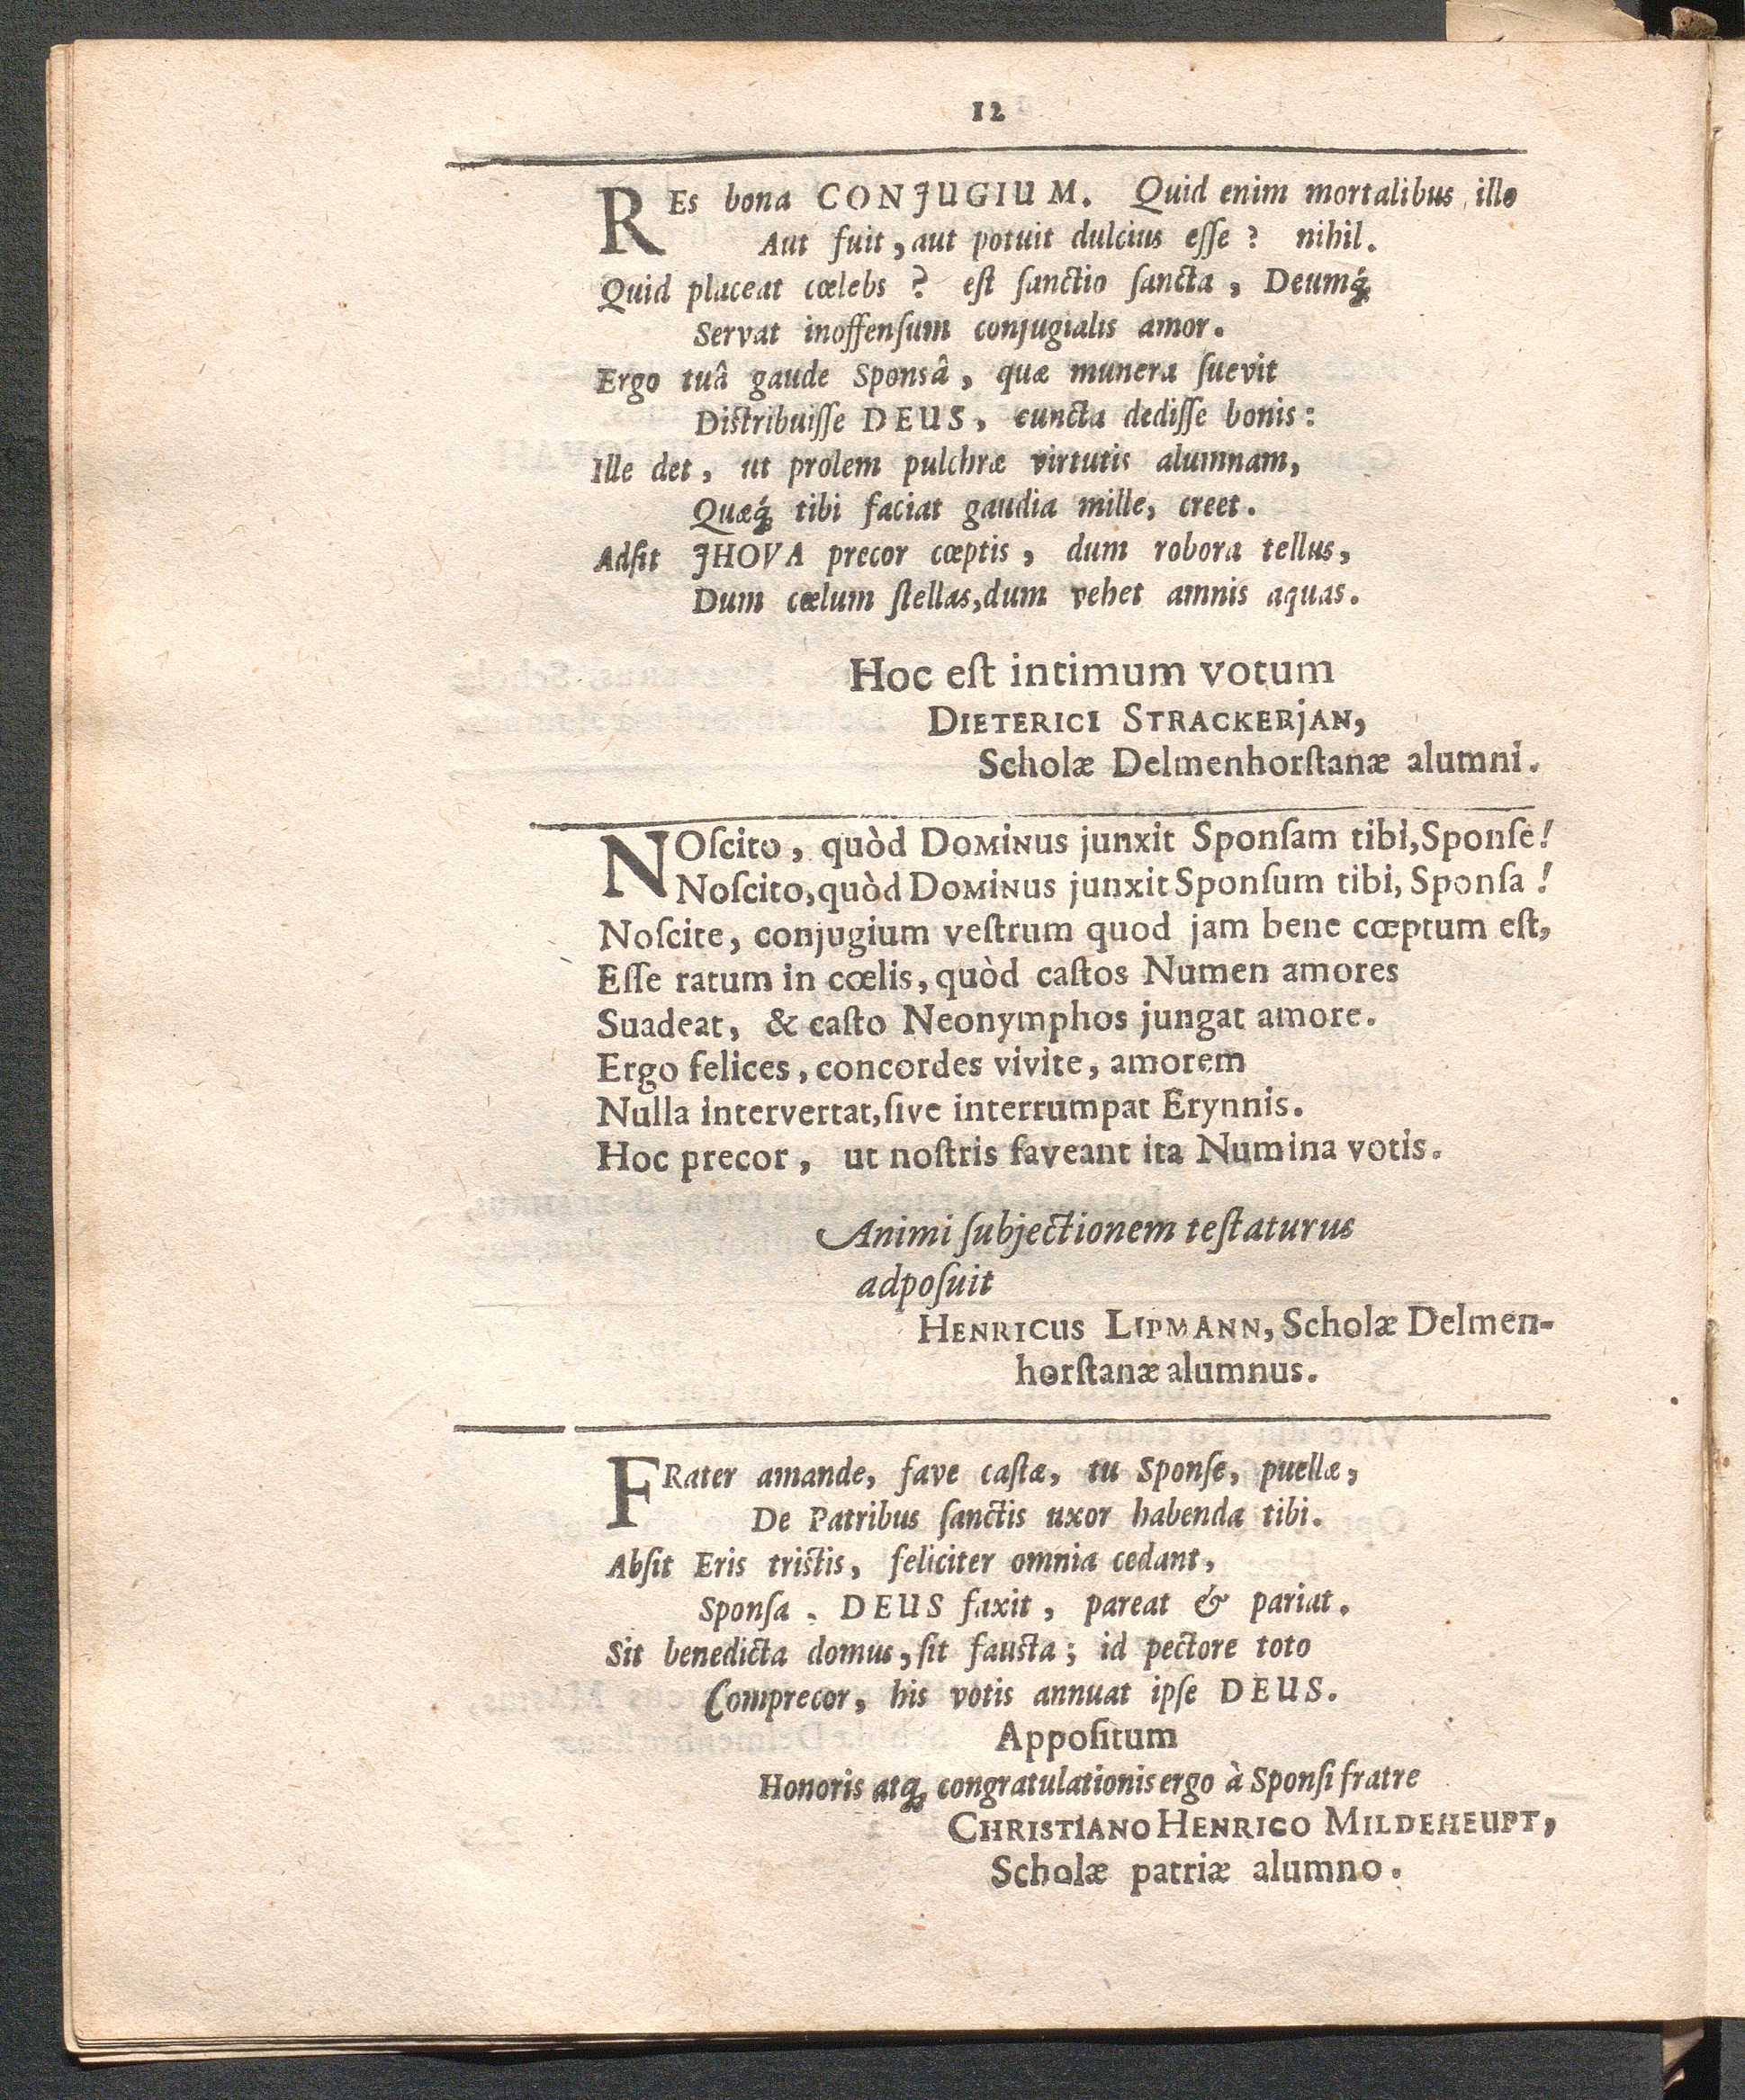 12
REs bona CONJUGIUM. Quid enim mortalibus illo
Aut fuit, aut potuit dulcius eſſe? nihil.
Quid placeat cœlebs? eſt ſanctio ſancta, Deumq́ꝫ
Servat inoffenſum conjugialis amor.
Ergo tuâ gaude Sponsâ, quæ munera ſuevit
Distribuiſſe DEUS, cuncta dediſſe bonis:
Ille det, ut prolem pulchræ virtutis alumnam,
Quæq́ꝫ tibi faciat gaudia mille, creet.
Adſit JHOVA precor cœptis, dum robora tellus,
Dum cœlum ſtellas, dum vehet amnis aquas.
Hoc eſt intimum votum
DIETERICI STRACKERjAN,
Scholæ Delmenhorſtanæ alumni.
NOſcito, quòd DOMINUS junxit Sponſam tibi, Sponſe!
Noſcito, quòd DOMINUS junxit Sponſum tibi, Sponſa!
Noſcite, conjugium veſtrum quod jam bene cœptum eſt,
Eſſe ratum in cœlis, quòd caſtos Numen amores
Suadeat, & caſto Neonymphos jungat amore.
Ergo felices, concordes vivite, amorem
Nulla intervertat, ſive interrumpat Erynnis.
Hoc precor, ut noſtris faveant ita Numina votis.
Animi ſubjectionem teſtaturus
adpoſuit
HENRICUS LIPMANN, Scholæ Delmen-
horſtanæ alumnus.
FRater amande, fave caſtæ, tu Sponſe, puellæ,
De Patribus ſanctis uxor habenda tibi.
Abſit Eris tristis, feliciter omnia cedant,
Sponſa. DEUS faxit, pareat & pariat.
Sit benedicta domus, ſit fausta; id pectore toto
Comprecor, his votis annuat ipſe DEUS.
Appoſitum
Honoris atqꝫ congratulationis ergo à Sponſi fratre
CHRISTIANO HENRICO MILDEHEUPT,
Scholæ patriæ alumno.